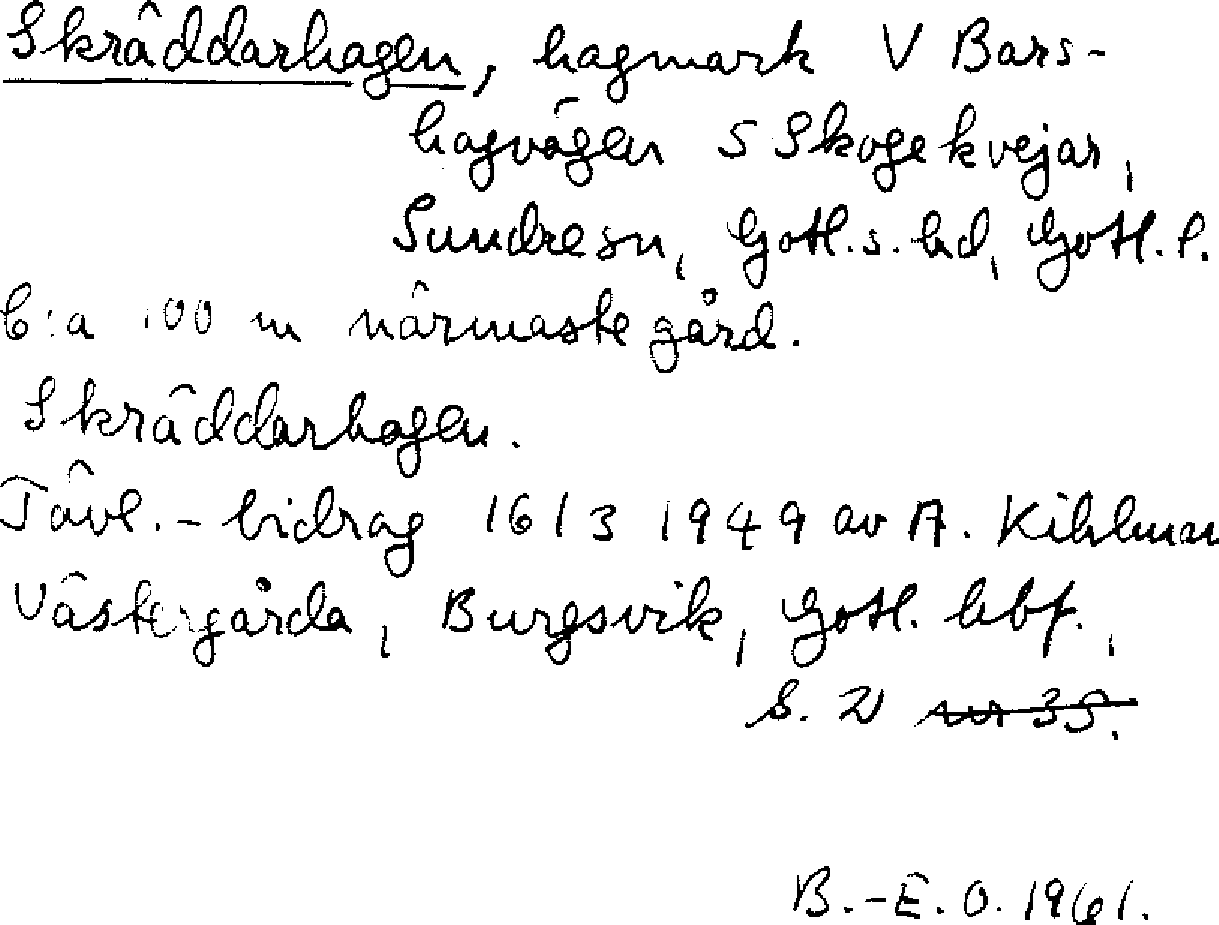 Skräddarhagen, hagmark V Bars-
hagvägen S Skogekvejar,
Sundre sn, Gotl. s. hd, Gotl. l.
C:a 100 m närmaste gård.
Skräddarhagen.
Tävl.-bidrag 16/3 1949 av A. Kihlman
Västergårda, Burgsvik, Gotl. hbf.,
s. 2 nr 35.
B.-E. O. 1961.